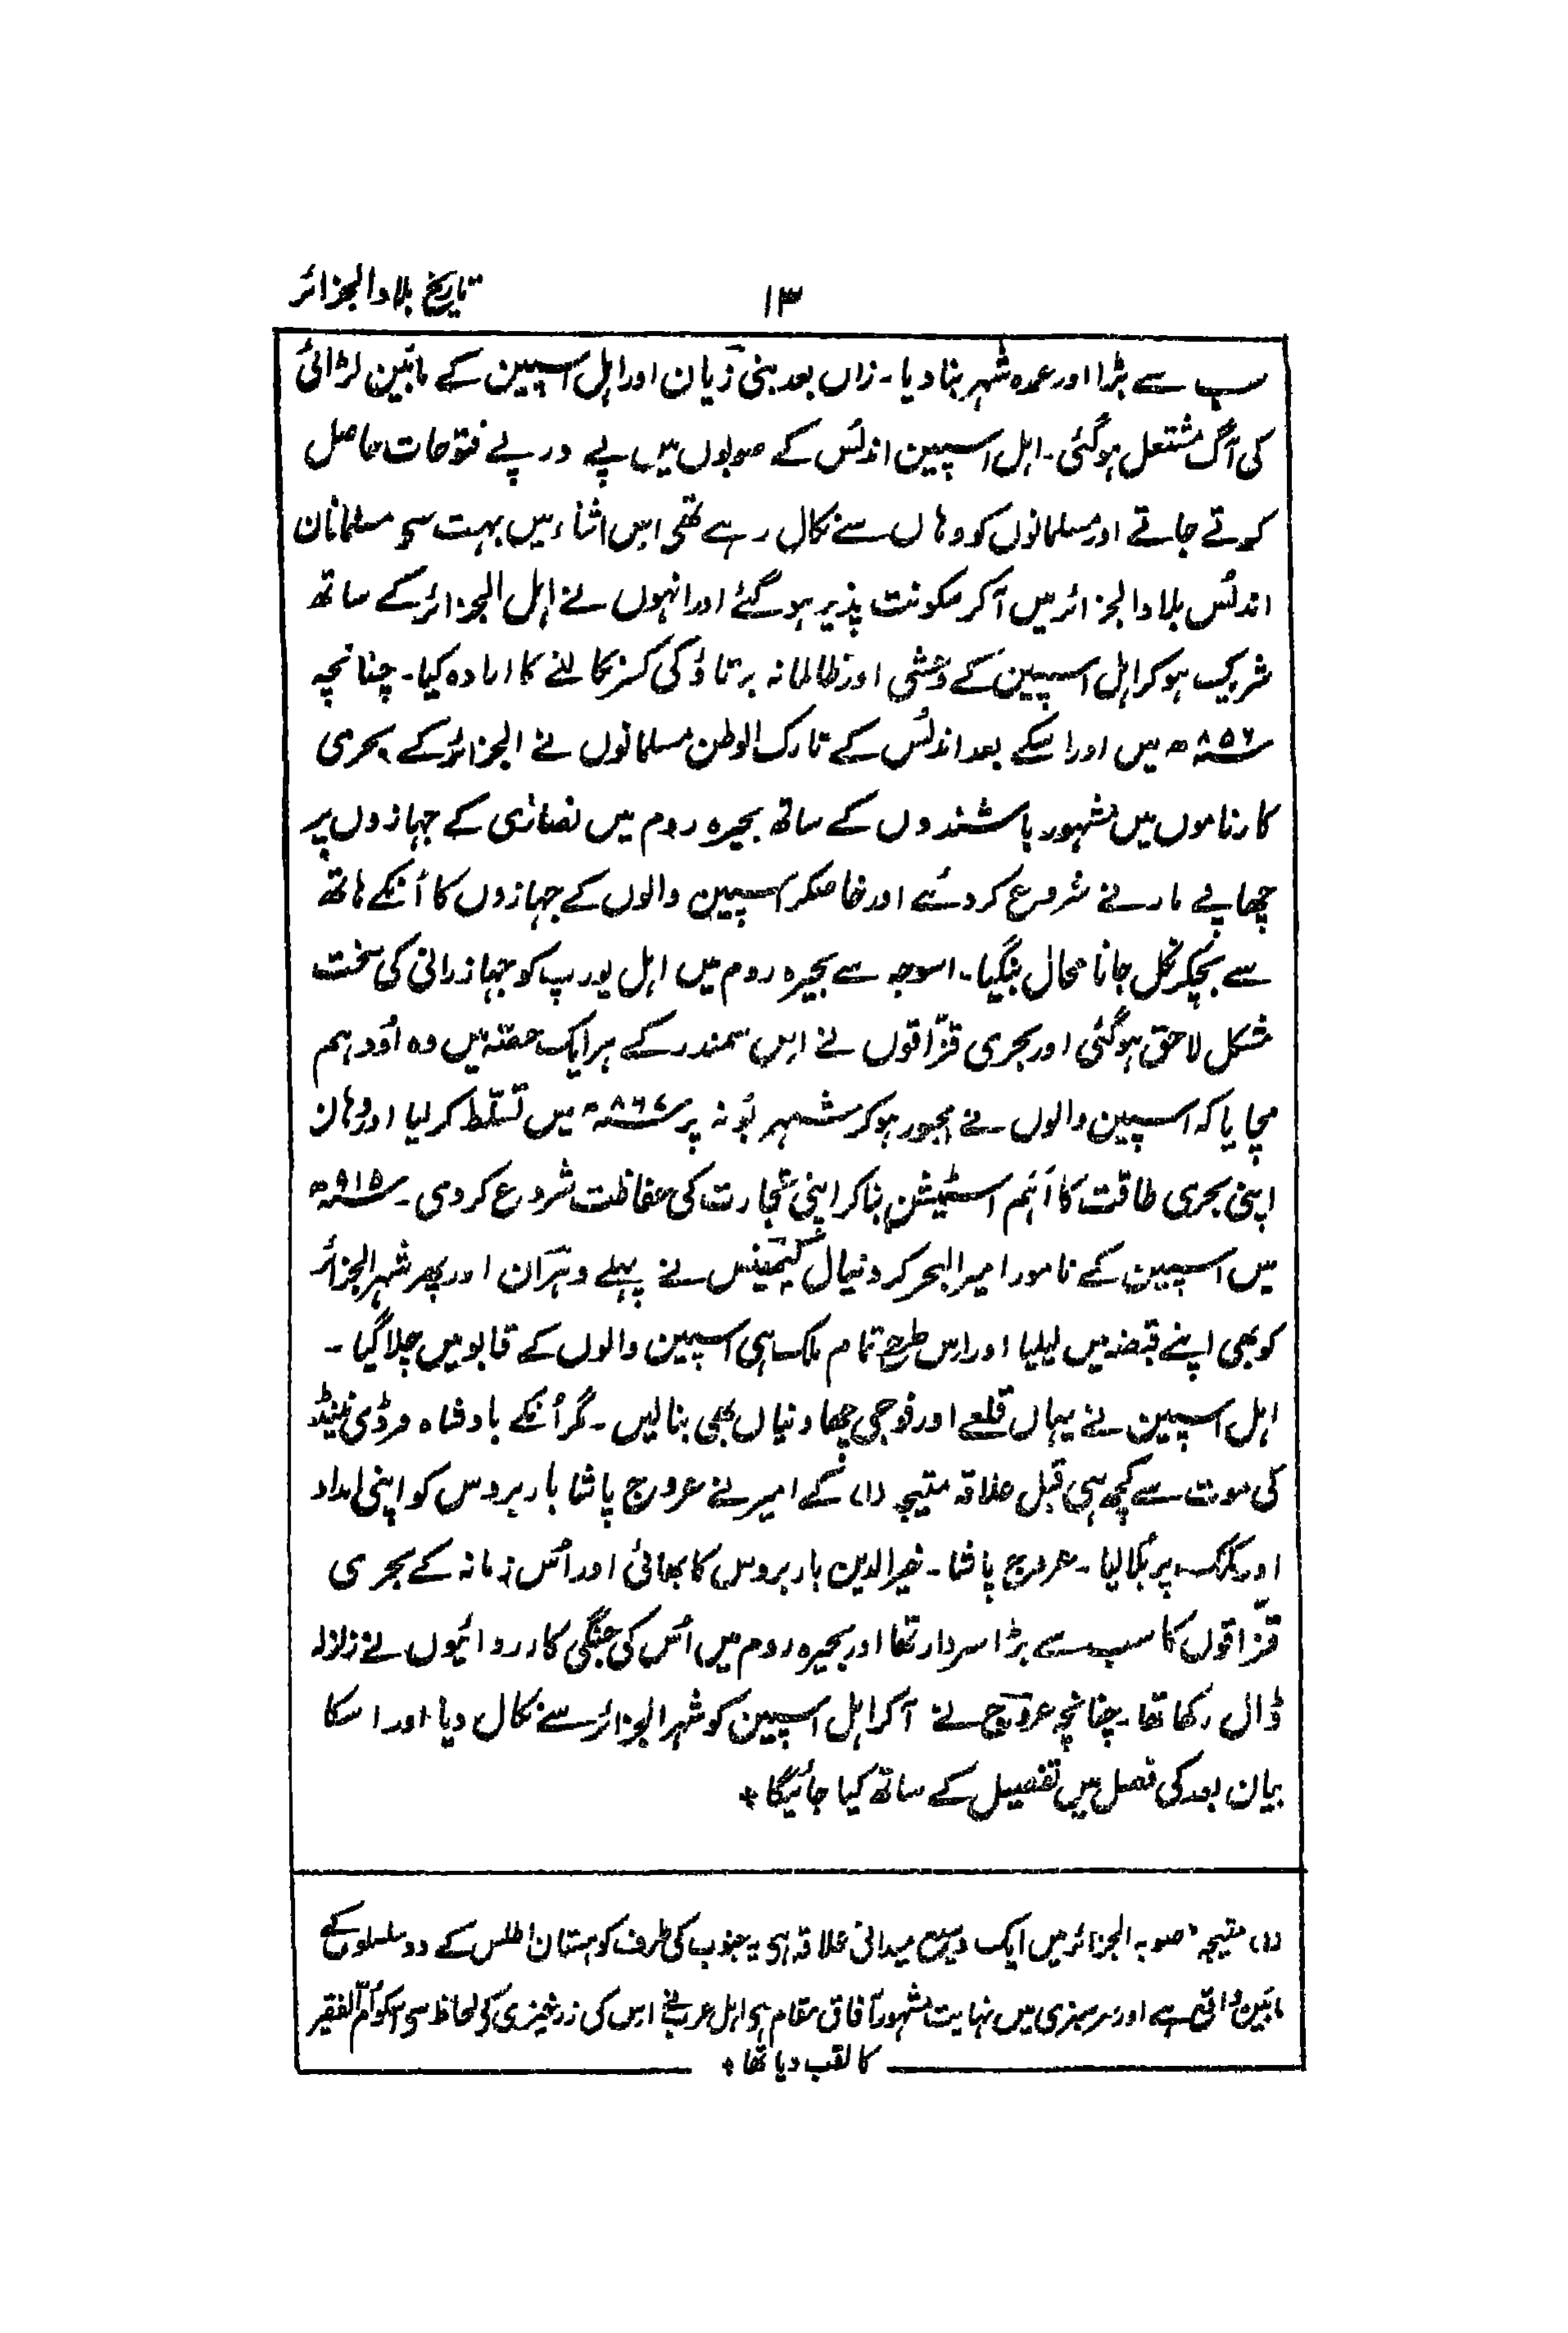 تاریخ بلاد الجزائر
۱۳
سب سے بڑا اور عمدہ شہر بنا دیا۔ زاں بعد بنی زیان اور اہل اسپین کے مابین لڑائی
کی آگ مشتعل ہوگئی۔ اہل اسپین اندلس کے صوبوں میں پے در پے فتوحات حاصل
کرتے جاتے اور مسلمانوں کو وہاں سے نکال رہے تھے اس اثناء میں بہت سے مسلمانان
اندلس بلاد الجزائر میں آکر سکونت پذیر ہوگئے اور انہوں نے اہل الجزائر کے ساتھ
شریک ہوکر اہل اسپین کے وحشی اور ظالمانہ برتاؤ کی کسر نکالنے کا ارادہ کیا۔ چنانچہ
سنہ ۸۵۶ھ میں اور اسکے بعد اندلس کے تارک الوطن مسلمانوں نے الجزائر کے بحری
کارناموں میں مشہور باشندوں کے ساتھ بحیرہ روم میں نصارٰی کے جہازوں پر
چھاپے مارنے شروع کردئے اور خاصکر اسپین والوں کے جہازوں کا اُنکے ہاتھ
سے بچکر نکل جانا محال بنگیا۔ اسوجہ سے بحیرہ روم میں اہل یورپ کو جہازرانی کی سخت
مشکل لاحق ہوگئی اور بحری قزّاقوں نے اس سمندر کے ہر ایک حصّہ میں وہ اُودہم
مچایا کہ اسپین والوں نے مجبور ہوکر شہر بُونہ پر سنہ ۸۶۷ھ میں تسلّط کرلیا اور وہاں
اپنی بحری طاقت کا اَہم اسٹیشن بنا کر اپنی تجارت کی حفاظت شروع کردی۔ سنہ ۹۱۵ھ
میں اسپین کے نامور امیر البحر کردنیال کیمینس نے پہلے وہران اور پھر شہر الجزائر
کو بھی اپنے قبضہ میں لیلیا اور اس طرح تمام ملک ہی اسپین والوں کے قابو میں چلا گیا۔
اہل اسپین نے یہاں قلعے اور فوجی چھاونیاں بھی بنالیں۔ مگر اُنکے بادشاہ فرڈی نینڈ
کی موت سے کچھ ہی قبل علاقہ متیجہ (۱) کے امیر نے عروج پاشا باربروس کو اپنی امداد
اور کمک پر بُلالیا۔ عروج پاشا۔ خیر الدین باربروس کا بھائی اور اُس زمانہ کے بحری
قزّاقوں کا سب سے بڑا سردار تھا اور بحیرہ روم میں اُس کی جنگی کارروائیوں نے زلزلہ
ڈال رکھا تھا۔ چنانچہ عروج نے آکر اہل اسپین کو شہر الجزائر سے نکال دیا اور اسکا
بیان بعد کی فصل میں تفصیل کے ساتھ کیا جائیگا *
(۱) متیجہ صوبہ الجزائر میں ایک وسیع میدانی علاقہ ہی یہ جنوب کی طرف کوہستان اطلس کے دو سلسلوں کے
مابین واقع ہے اور سرسبزی میں نہایت مشہور آفاق مقام ہی اہل عرب نے اس کی زرخیزی کی لحاظ سی اسکو اُمّ الفقیر
کا لقب دیا تھا *